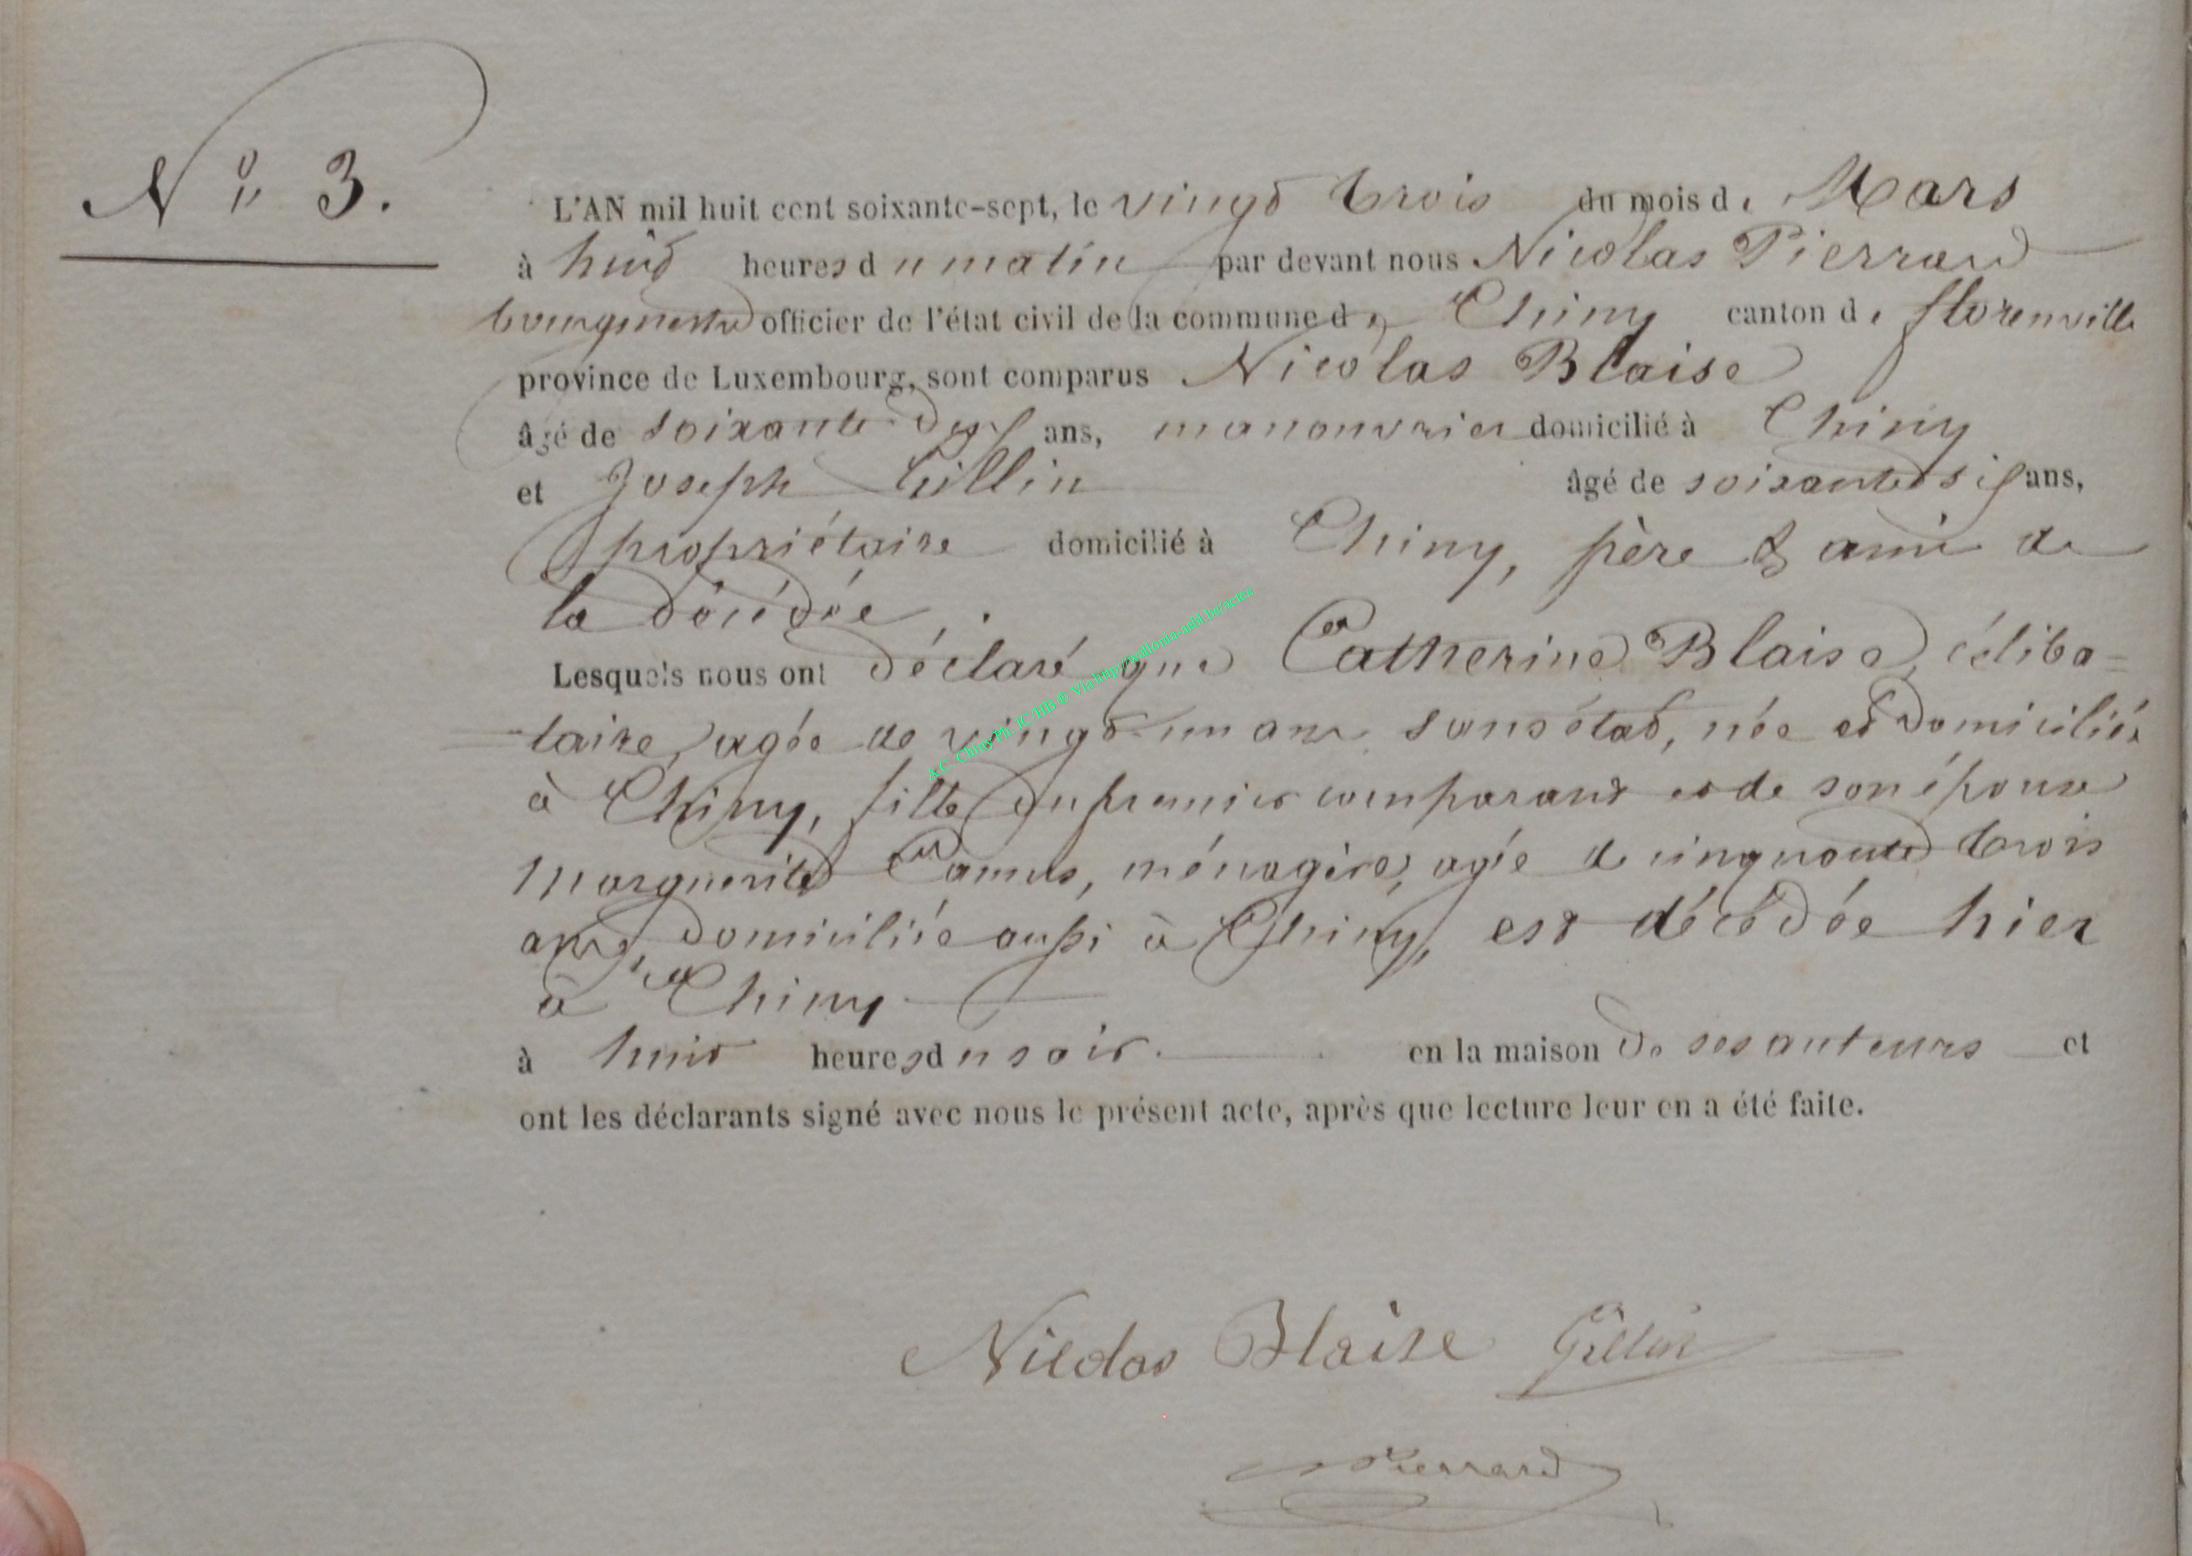 N° 3.
L'AN mil huit cent soixante-sept, le vingt trois du mois de Mars
à huit heures du matin par devant nous Nicolas Pierrard
bourgmestre officier de l'état civil de la commune de Chiny canton de florenville
province de Luxembourg, sont comparus Nicolas Blaise
âgé de soixante dix ans, manouvrier domicilié à Chiny
et Joseph Gillin âgé de soixante six ans,
propriétaire domicilié à Chiny, père & ami de
la décédée.
Lesquels nous ont déclaré que Catherine Blaise, céliba=
=taire, agée de vingt-un ans sans état, née et domiciliée
à Chiny, fille du premier comparant et de son épouse
Marguerite Camus, ménagère, agée de cinquante trois
ans, domiciliée aussi à Chiny, est décédée hier
à Chiny
à huit heures du soir. en la maison de ses auteurs et
ont les déclarants signé avec nous le présent acte, après que lecture leur en a été faite.
Nicolas Blaise Gillin
Pierrard